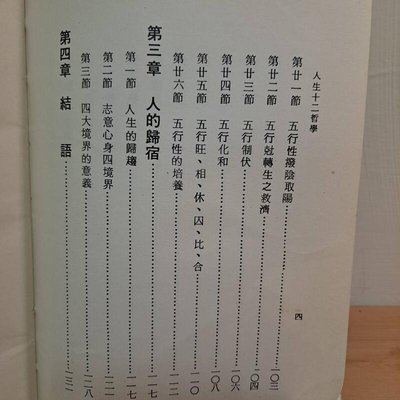 人生十二哲學
四
第廿一節　五行性撥陰取陽………一〇三
第廿二節　五行尅轉生之救濟………一〇四
第廿三節　五行制伏………一〇六
第廿四節　五行化和………一〇八
第廿五節　五行旺、相、休、囚、比、合………一一〇
第廿六節　五行性的培養………一一二
第三章　人的歸宿………一一七
第一節　人生的歸趨………一一七
第二節　志意心身四境界………一二一
第三節　四大境界的意義………一二八
第四章　結　語………一三一